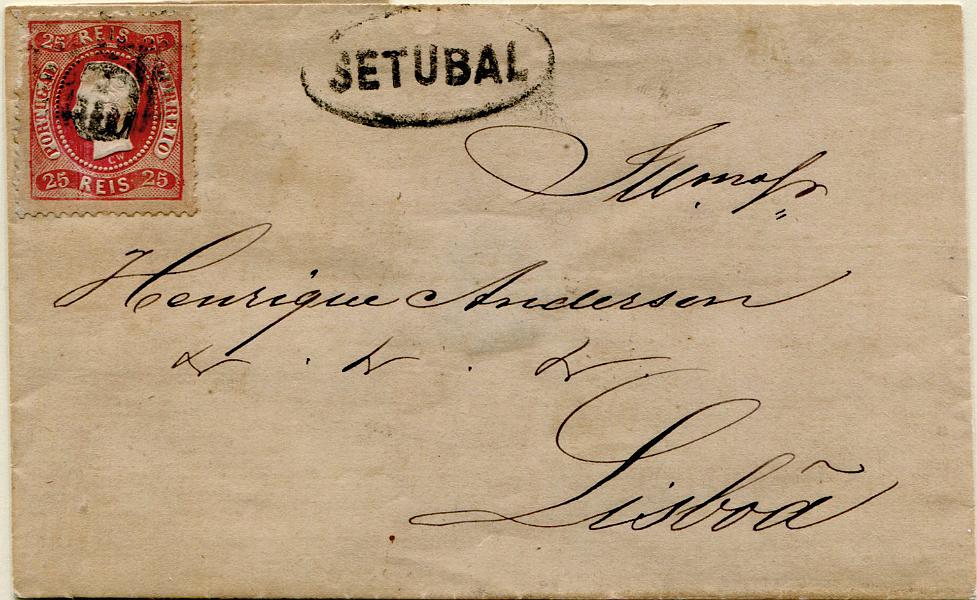 25 REIS 25
PORTUGAL
CORREIO
CW
25 REIS 25
SETUBAL
Illmo Sr.
Henrique Anderson
Lisboã